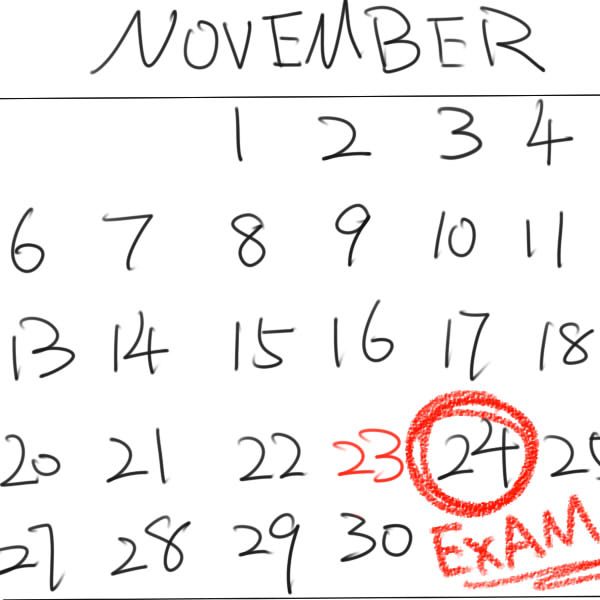 NOVEMBER
1 2 3 4
6 7 8 9 10 11
13 14 15 16 17 18
20 21 22 23 24 25
27 28 29 30 EXAM